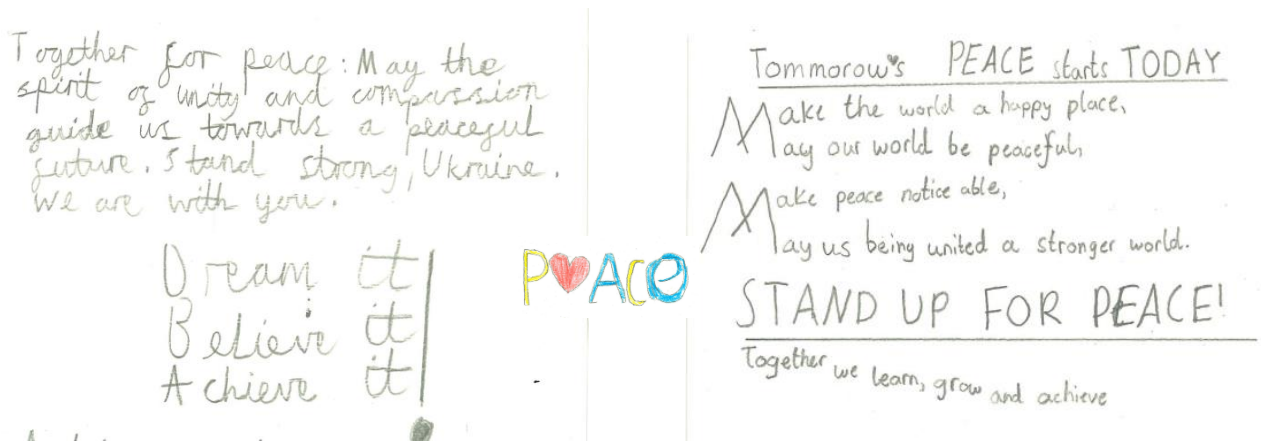 Together for peace: May the
spirit of unity and compassion
guide us towards a peaceful
future. Stand strong, Ukraine.
We are with you.
Dream it
Believe it
Achieve it
P❤ACe
Tommorow's PEACE starts TODAY
Make the world a happy place,
May our world be peaceful,
Make peace notice able,
May us being united a stronger world.
STAND UP FOR PEACE!
Together we learn, grow and achieve